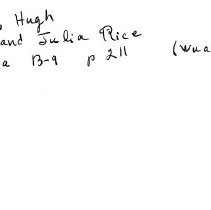 Hugh
and Julia Rice
a B-9 p 211 (wua